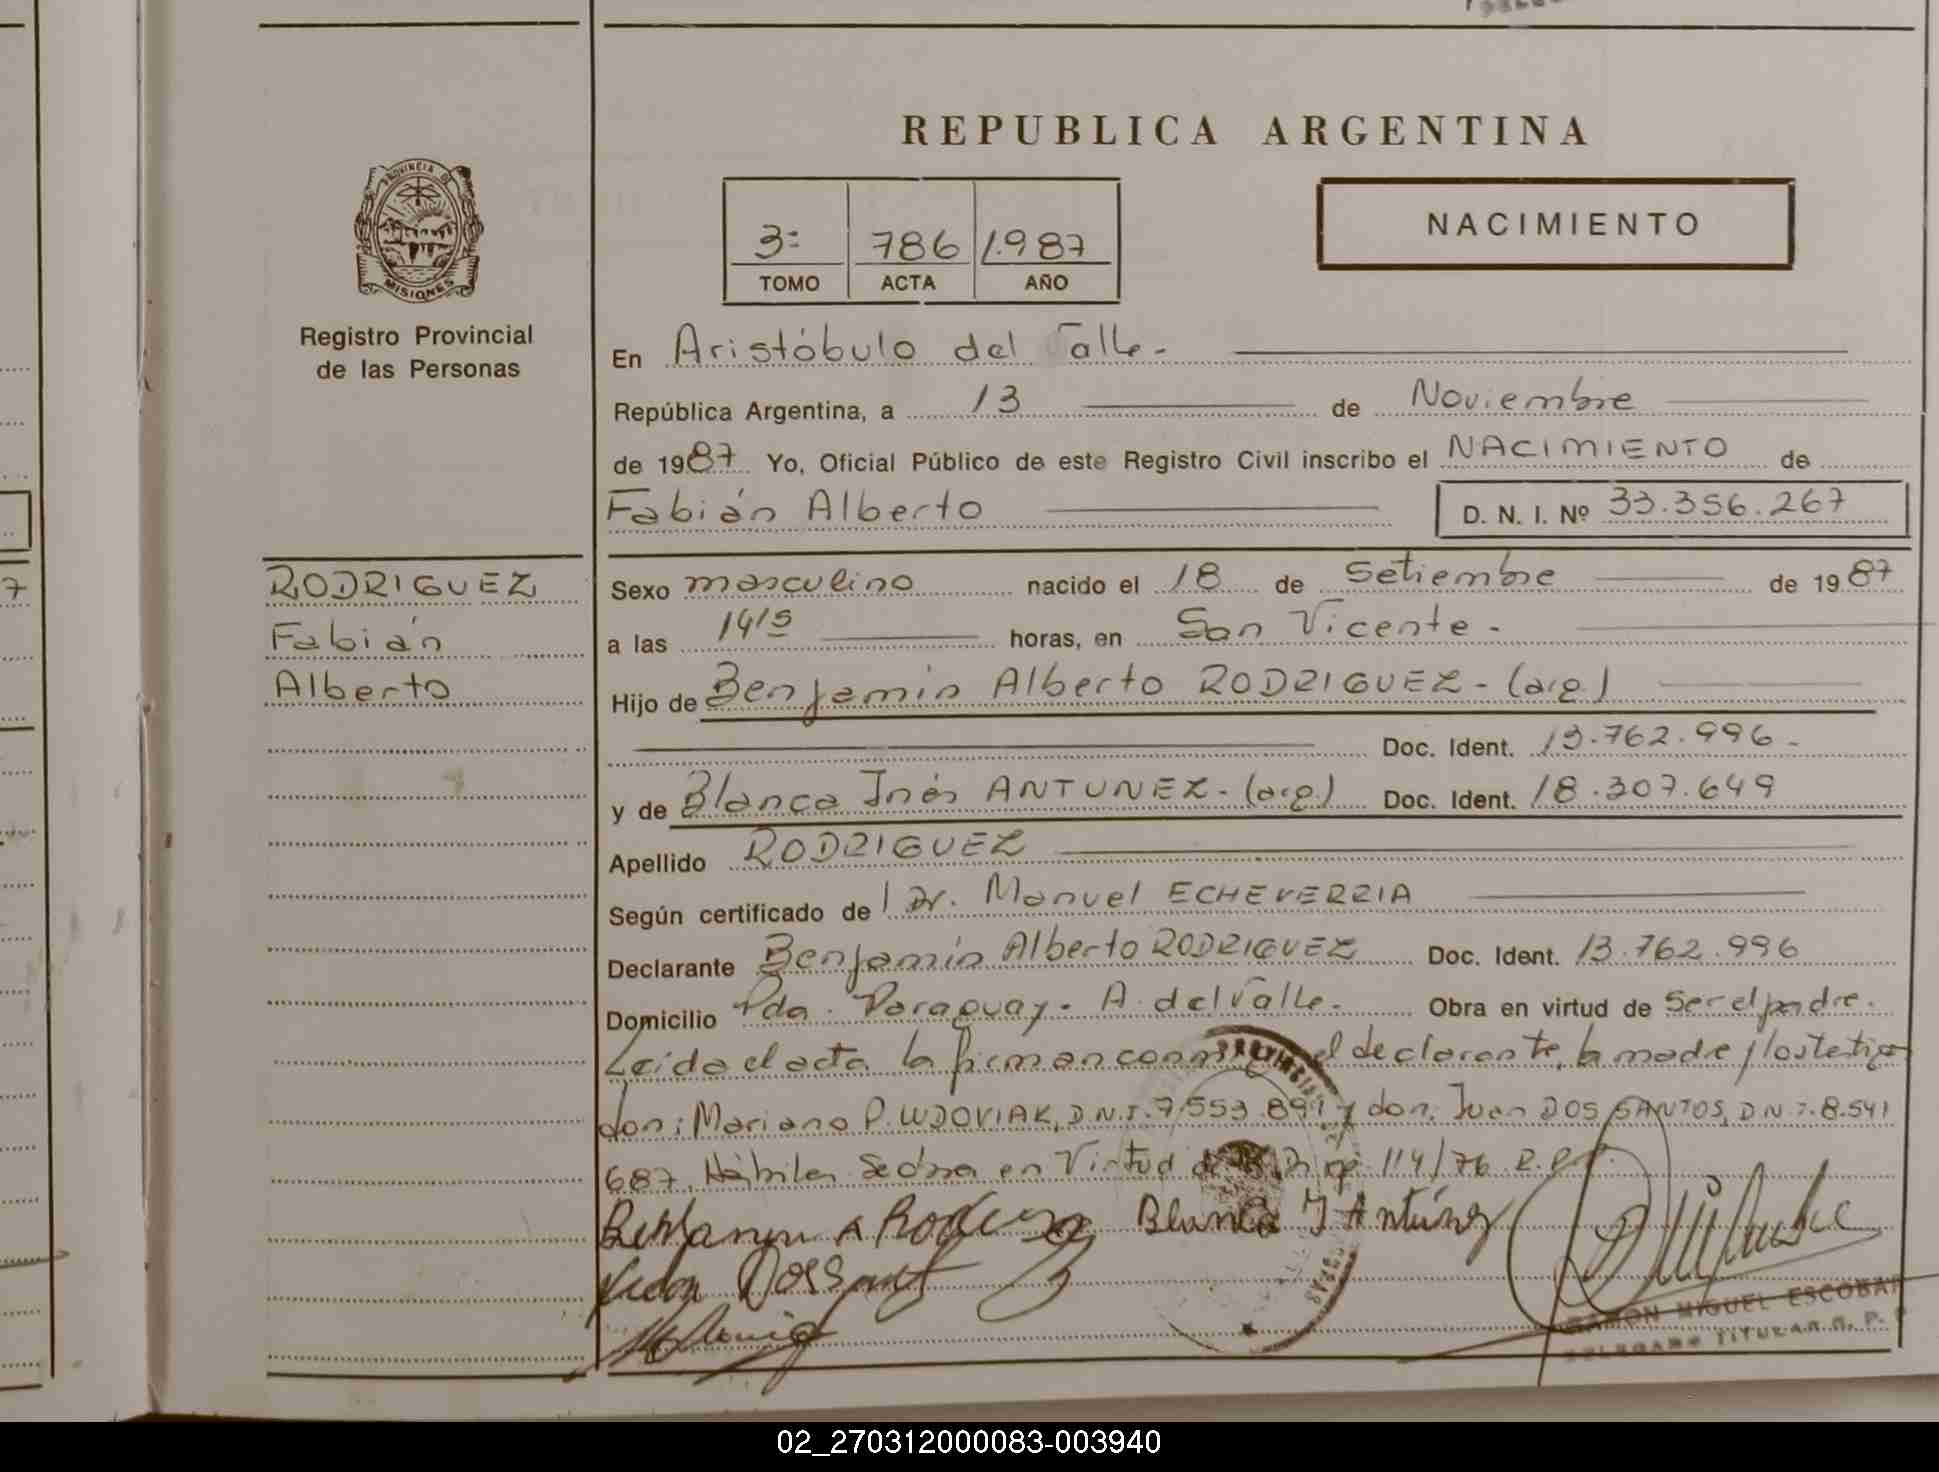 REPUBLICA ARGENTINA
PROVINCIA DE
MISIONES
Registro Provincial
de las Personas
3º 786 1.987
TOMO ACTA AÑO
NACIMIENTO
En Aristóbulo del Valle.-
República Argentina, a 13 de Noviembre
de 1987 Yo, Oficial Público de este Registro Civil inscribo el NACIMIENTO de
Fabián Alberto D. N. I. Nº 33.356.267
RODRIGUEZ
Fabián
Alberto
Sexo masculino nacido el 18 de Setiembre de 1987
a las 1415 horas, en San Vicente.-
Hijo de Benjamín Alberto RODRIGUEZ.- (arg.)
Doc. Ident. 13.762.996.-
y de Blanca Inés ANTUNEZ.- (arg.) Doc. Ident. 18.307.649
Apellido RODRIGUEZ
Según certificado de l Dr. Manuel ECHEVERRIA
Declarante Benjamín Alberto RODRIGUEZ Doc. Ident. 13.762.996
Domicilio Pda. Paraguay.- A. del Valle.- Obra en virtud de Ser el padre.
Leida el acta la firman conmigo el declarante, la madre y los testigos
don: Mariano P. WDOVIAK, D.N.I. 7.553.891 y don, Juan DOS SANTOS, D.N.I. 8.541
687, Hábiles Se obra en Virtud de 114/76
Blanca I Antúnez
RAMON MIGUEL ESCOBAR
DELEGADO TITULAR R. P. P
02_270312000083-003940